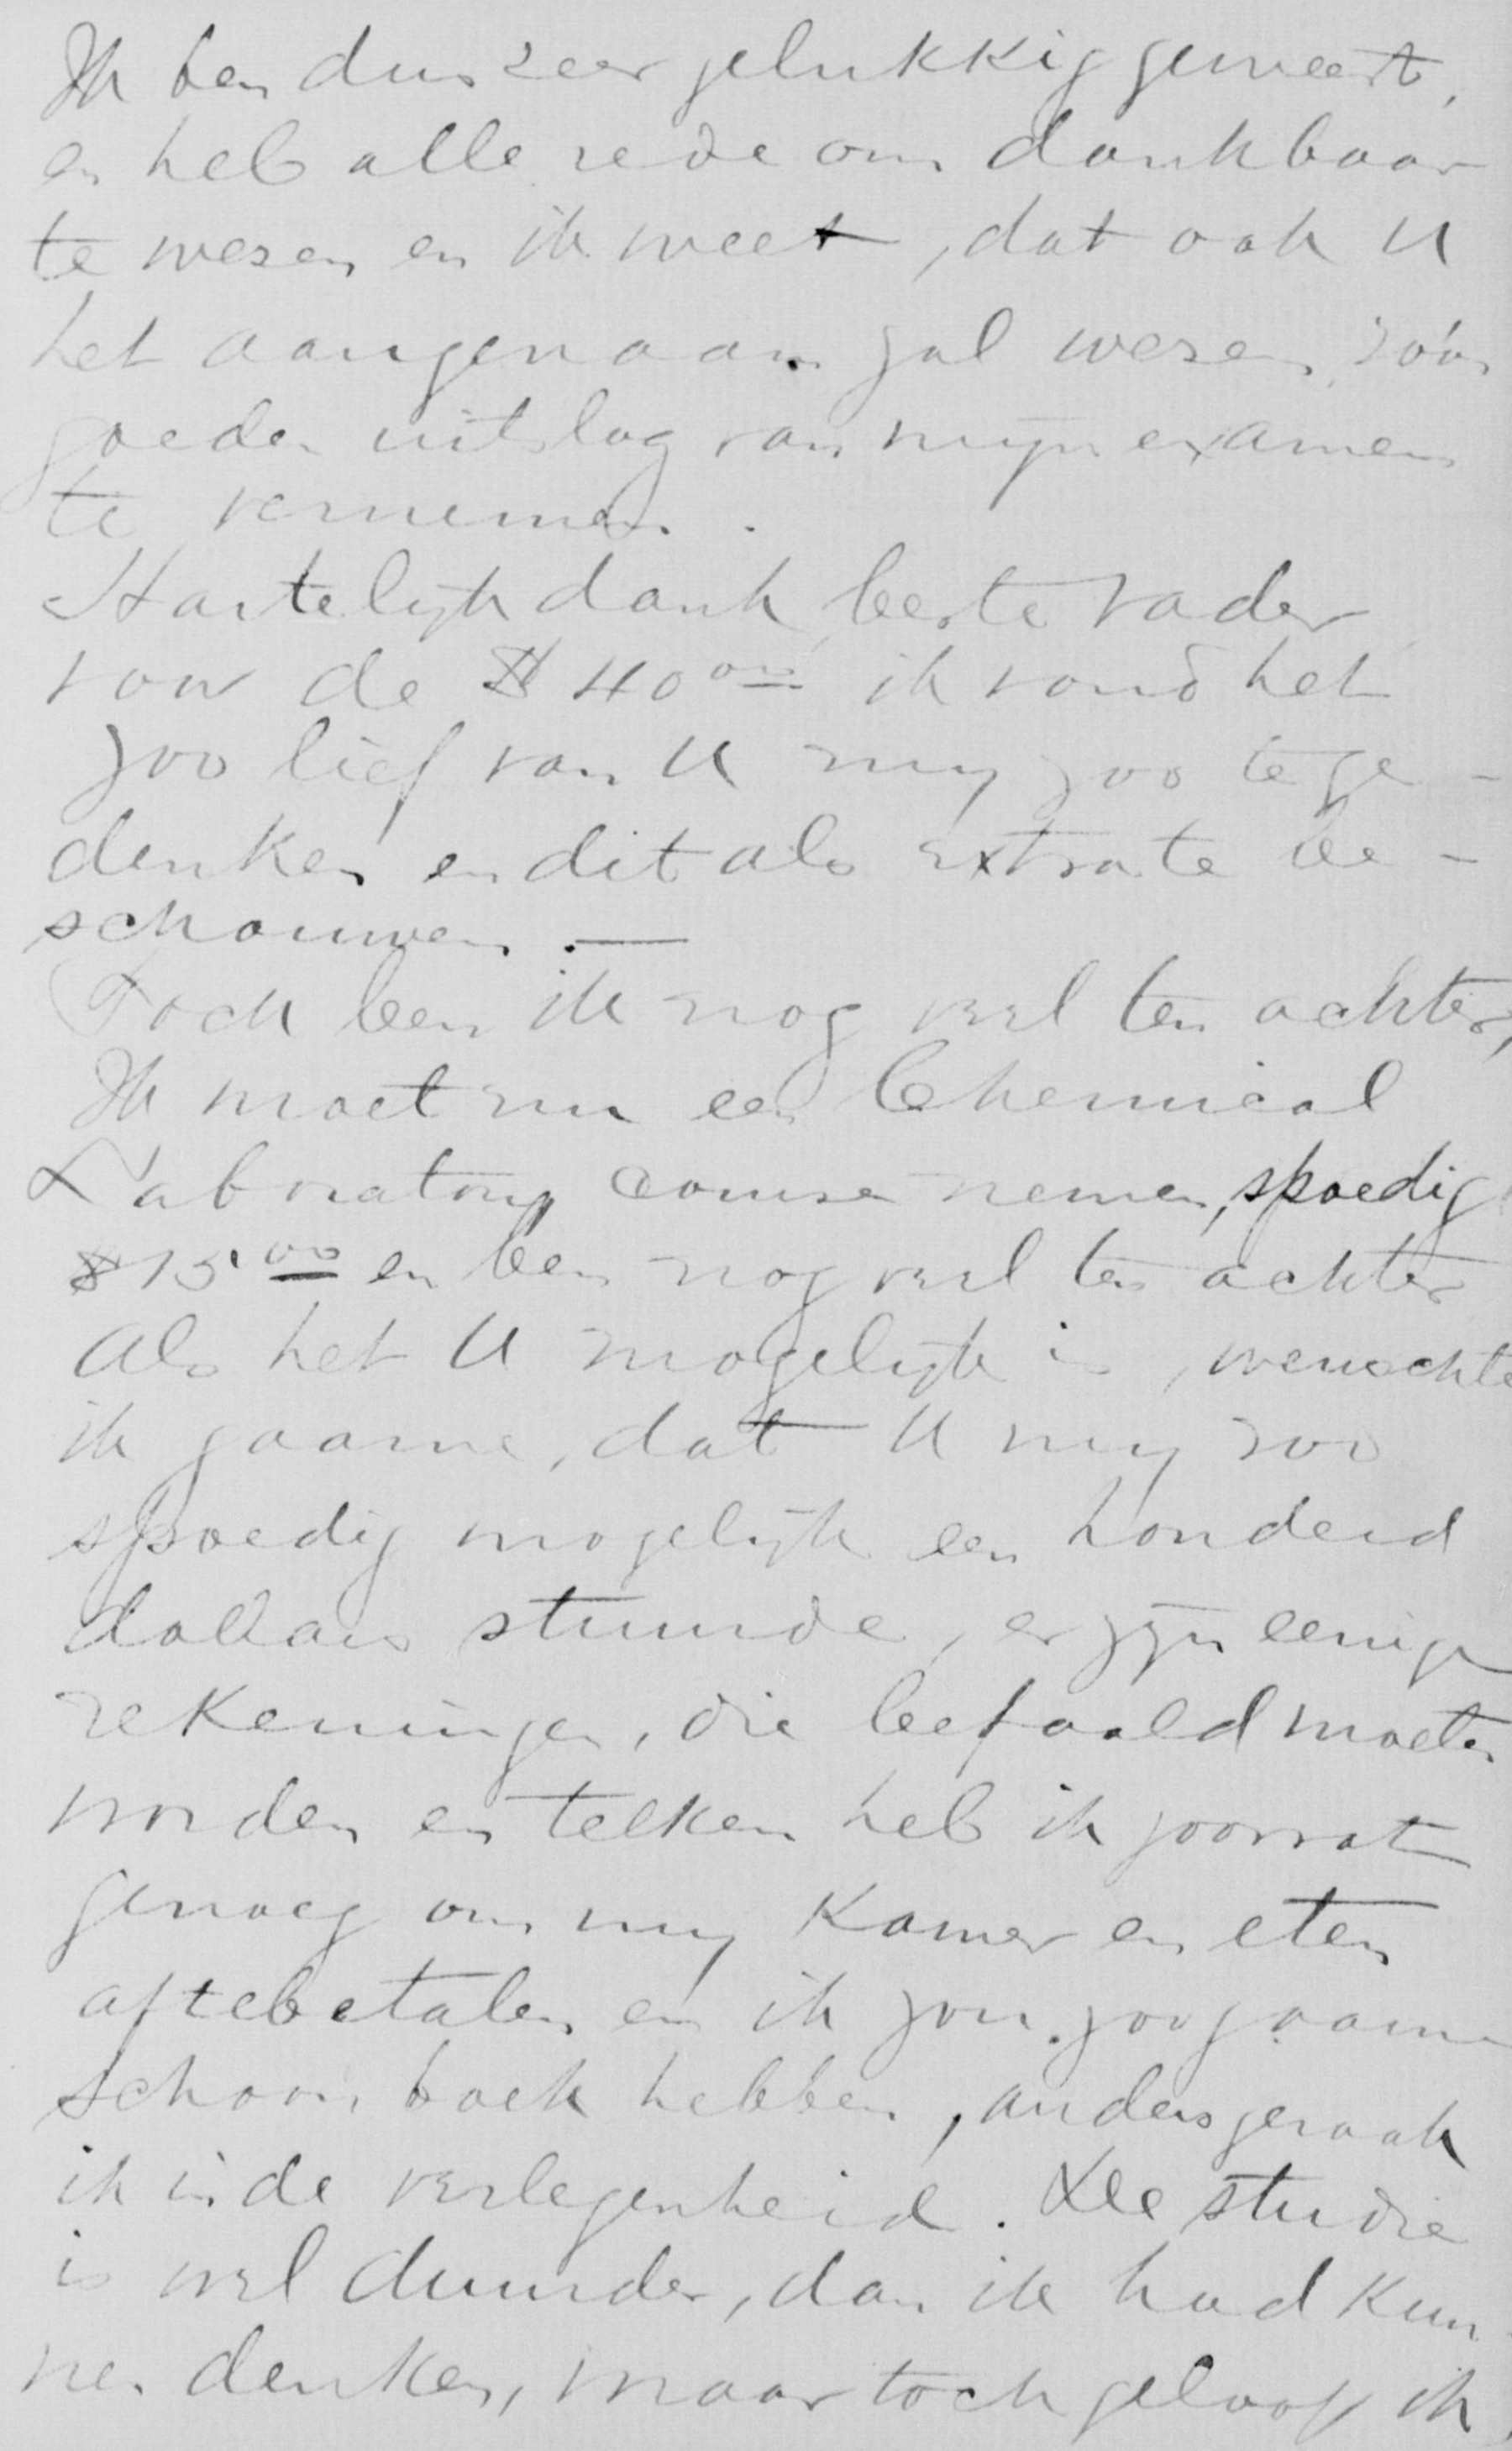 Ik ben dus zeer gelukkig geweest,
en heb alle rede om dankbaar
te wezen en ik weet, dat ook U
het aangenaam zal wezen, zóó'n
goeden uitslag van mijn examen
te vernemen.
Hartelijk dank, beste Vader
voor de $40.00 ik vond het
zoo lief van U mij zoo te ge-
denken en dit als extra te be-
schouwen. —
Toch ben ik nog veel ten achter,
Ik moet nu een Chemical
Laboratory Course nemen, spoedig
$15.00 en ben nog veel ten achter
Als het U mogelijk is, wenschte
ik gaarne, dat U mij zoo
spoedig mogelijk een honderd
dollars stuurde, er zijn eenige
rekeningen, die betaald moeten
worden en telken heb ik zoovat
genoeg om mij Kamer en eten
aftebetalen en ik zou zoo gaarne
schoon boek hebben, anders geraak
ik in de verlegenheid. De studie
is wel duurder, dan ik had kun-
nen denken, maar toch geloof ik,